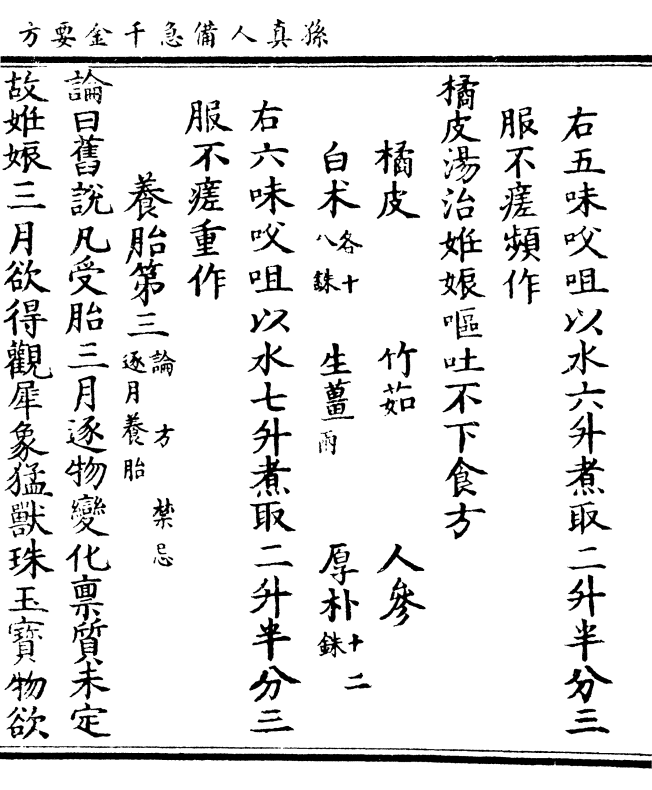 孫真人備急千金要方
右五味㕮咀以水六升煮取二升半分三
服不瘥頻作
橘皮湯治妊娠嘔吐不下食方
橘皮 竹茹 人參
白术各十八銖 生薑兩 厚朴十二銖
右六味㕮咀以水七升煮取二升半分三
服不瘥重作
養胎第三 論 方 禁忌 逐月養胎
論曰舊說凡受胎三月逐物變化禀質未定
故妊娠三月欲得觀犀象猛獸珠玉寶物欲